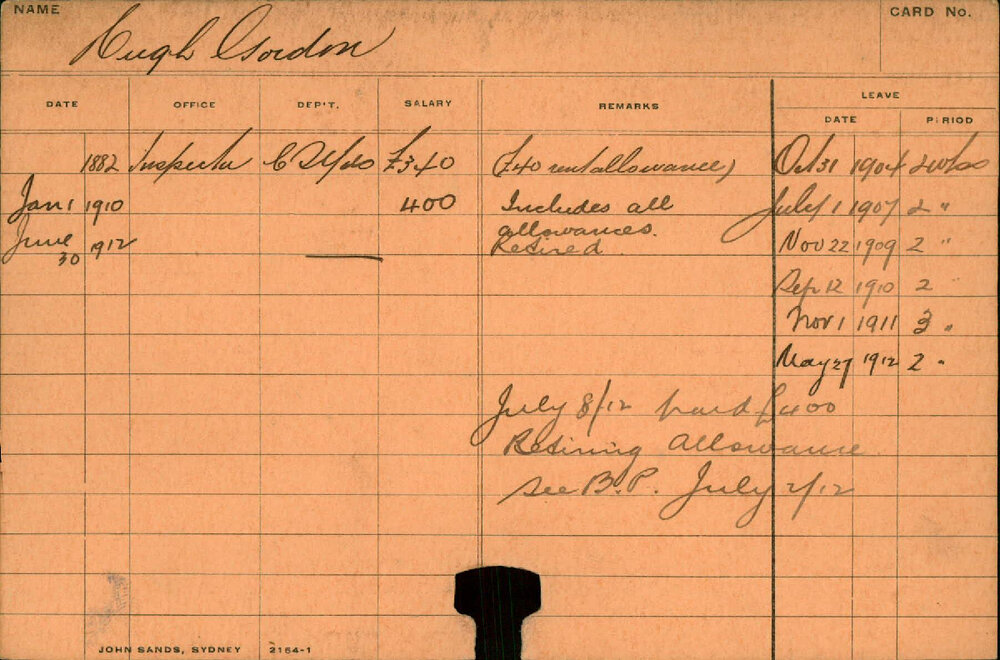 NAME
Hugh Gordon
CARD No.
DATE OFFICE DEP'T. SALARY REMARKS LEAVE
DATE PERIOD
1882 Inspector C S Yds £340 (£40 rent allowance) Oct 31 1904 2 wks
Jan 1 1910 400 Includes all July 1 1907 2 "
allowances.
June 30 1912 Retired Nov 22 1909 2 "
Sep 12 1910 2
Nov 1 1911 3 "
May 27 1912 2 "
July 8/12 paid £400
Retiring Allowance
see B.P. July 2/12
JOHN SANDS, SYDNEY 2154-1